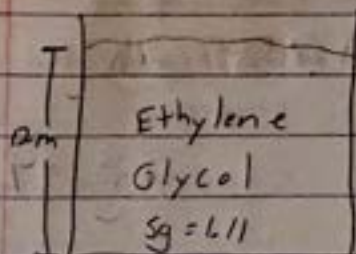 Ethylene
Glycol
Sg = 1.11